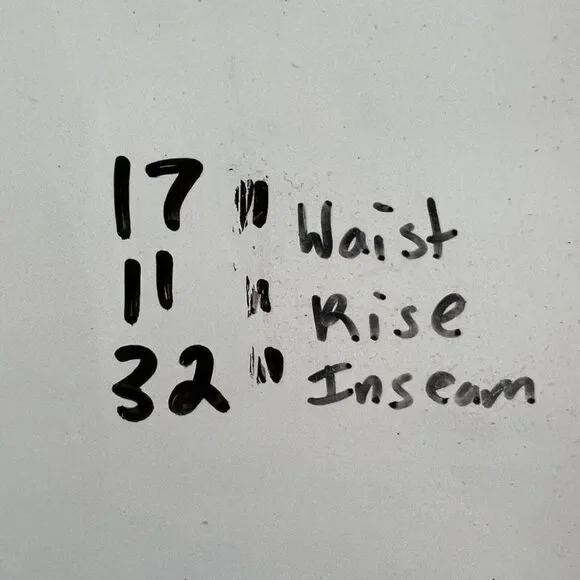 17" Waist
11" Rise
32" Inseam